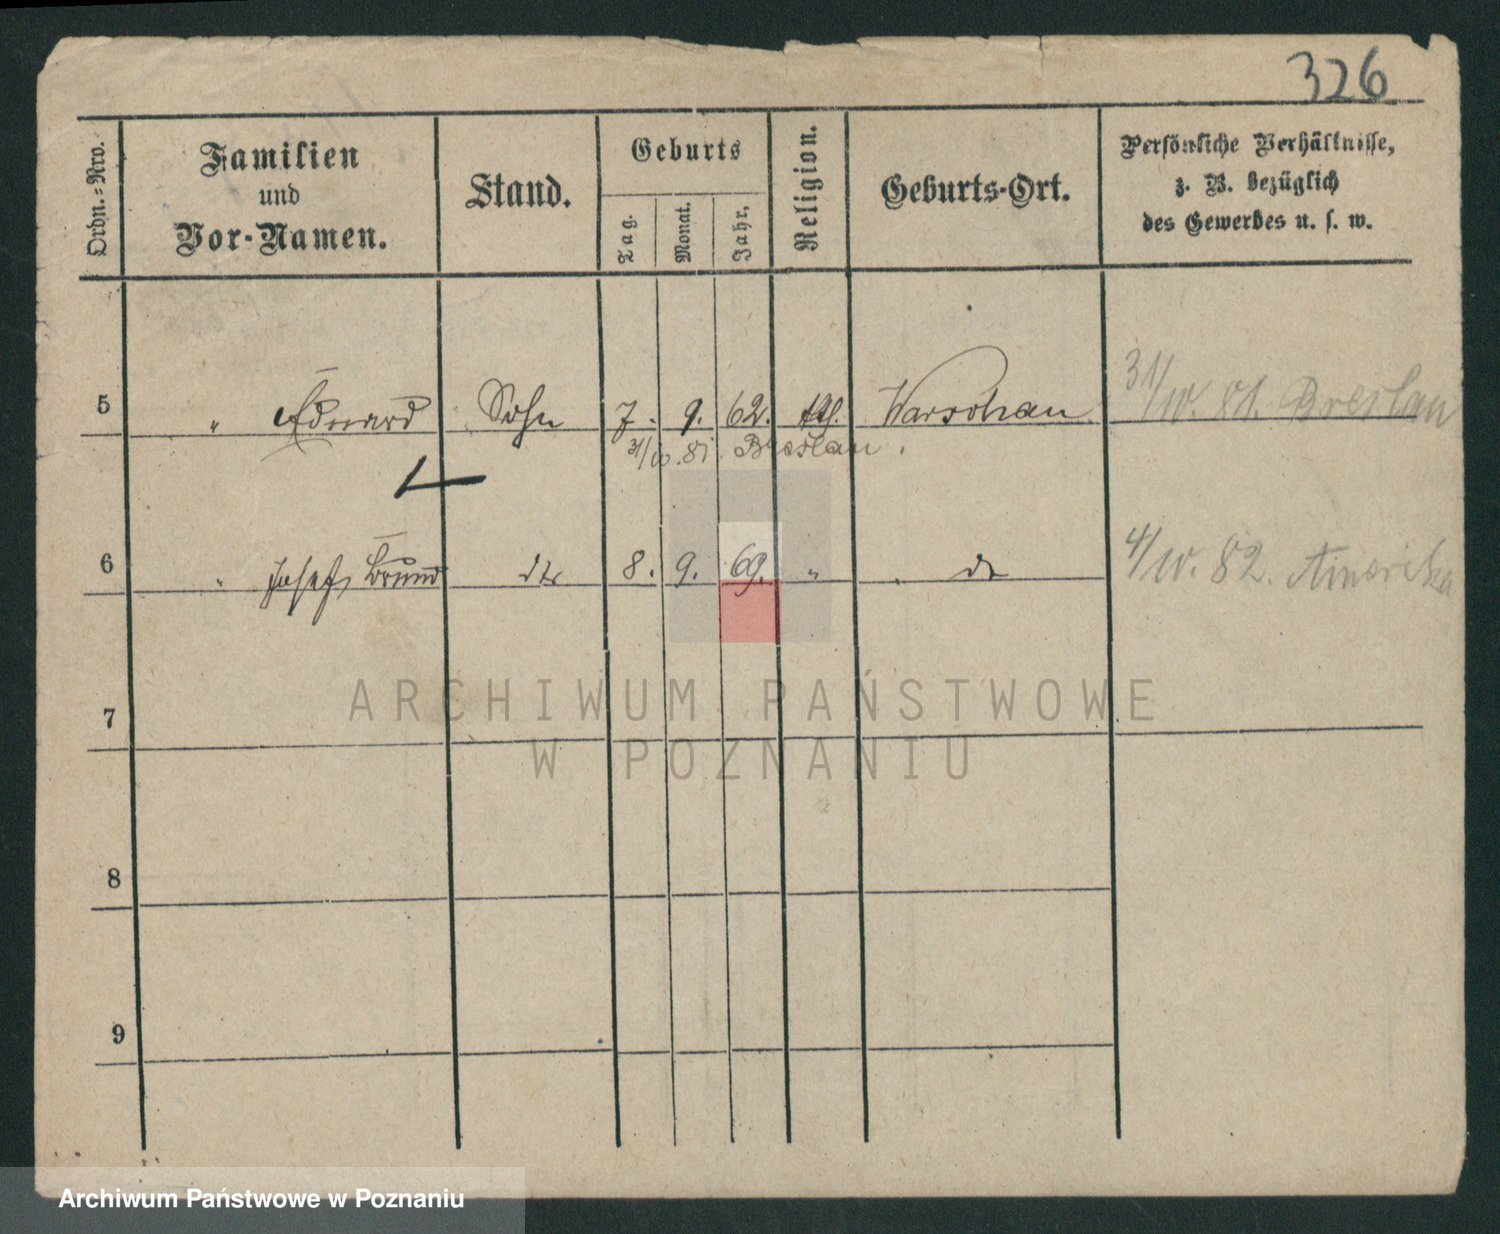 326
Ordn.=Nro.
Familien
und
Vor-Namen.
Stand.
Geburts
Tag.
Monat.
Jahr.
Religion.
Geburts-Ort.
Persönliche Verhältnisse,
z. B. bezüglich
des Gewerbes u. s. w.
5 " Eduard Sohn 7. 9. 62. kth. Warschau 31/10. 81. Breslau
31/10. 81. Breslau.
6 " Josef, Bruno dto 8. 9. 69. " " do 4/10. 82. Amerika
7
8
9
ARCHIWUM PAŃSTWOWE
W POZNANIU
Archiwum Państwowe w Poznaniu